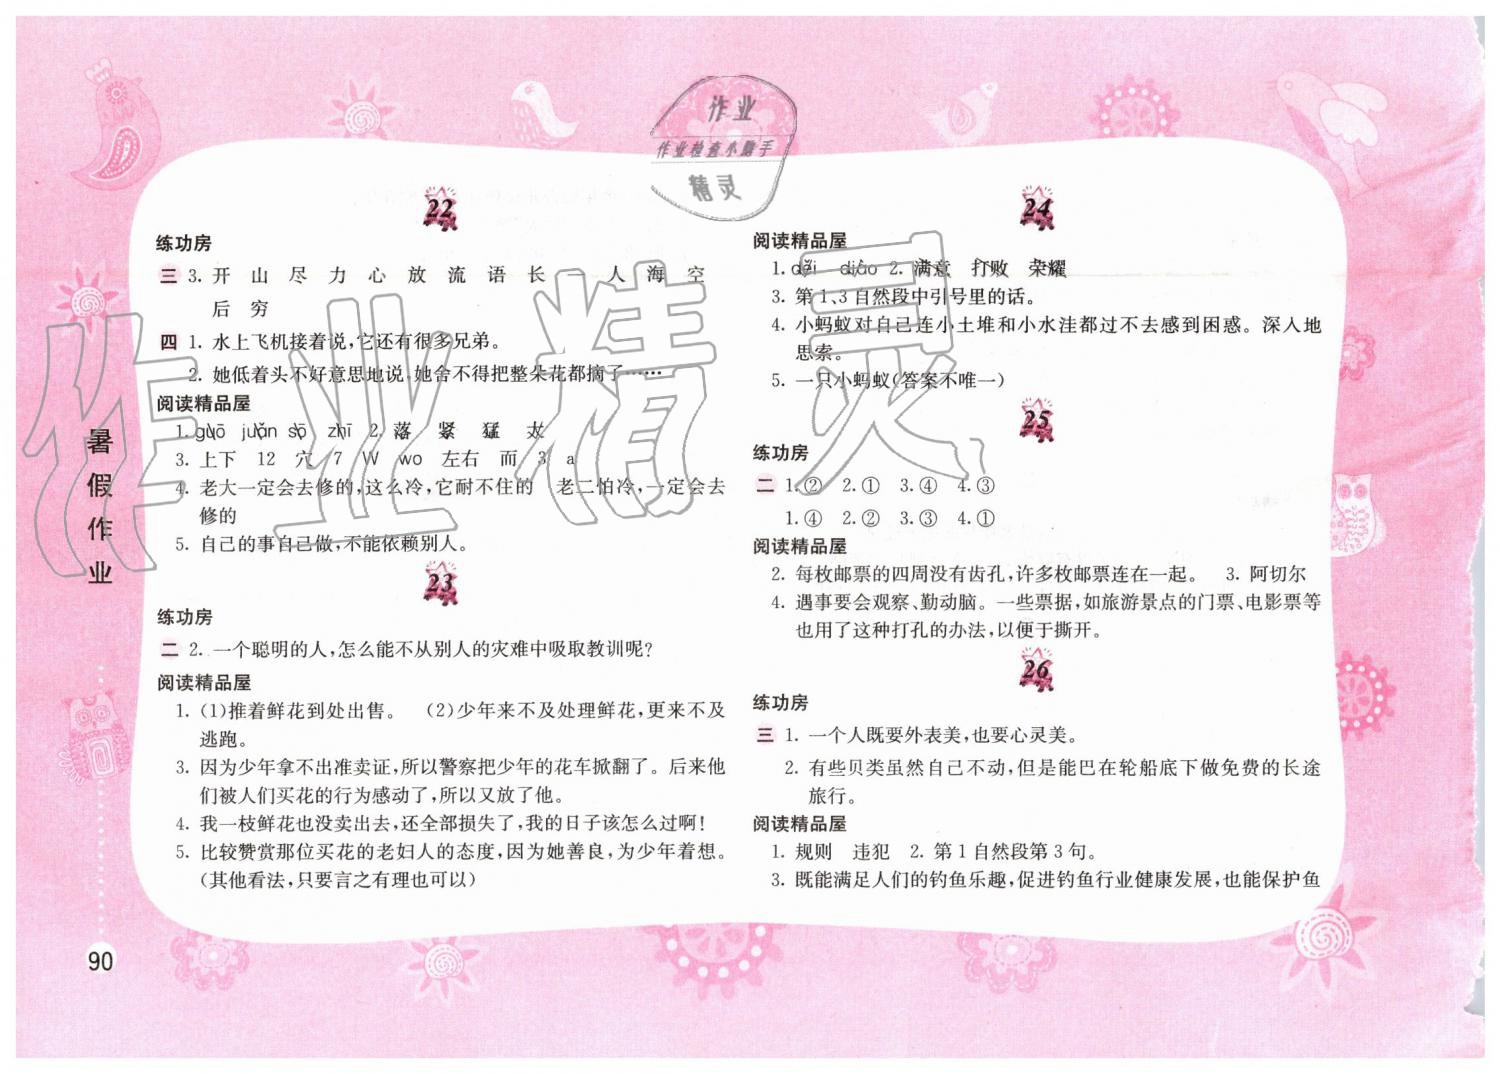 作业
作业检查小助手
精灵
22
练功房
三 3. 开 山 尽 力 心 放 流 语 长 一 人 海 空
后 穷
四 1. 水上飞机接着说,它还有很多兄弟。
2. 她低着头不好意思地说,她舍不得把整朵花都摘了……
阅读精品屋
1. guō juǎn sō zhī 2. 落 紧 猛 大
3. 上下 12 穴 7 W wo 左右 而 3 a
4. 老大一定会去修的,这么冷,它耐不住的 老二怕冷,一定会去
修的
5. 自己的事自己做,不能依赖别人。
23
练功房
二 2. 一个聪明的人,怎么能不从别人的灾难中吸取教训呢?
阅读精品屋
1. (1)推着鲜花到处出售。 (2)少年来不及处理鲜花,更来不及
逃跑。
3. 因为少年拿不出准卖证,所以警察把少年的花车掀翻了。后来他
们被人们买花的行为感动了,所以又放了他。
4. 我一枝鲜花也没卖出去,还全部损失了,我的日子该怎么过啊!
5. 比较赞赏那位买花的老妇人的态度,因为她善良,为少年着想。
(其他看法,只要言之有理也可以)
24
阅读精品屋
1. děi diāo 2. 满意 打败 荣耀
3. 第1、3自然段中引号里的话。
4. 小蚂蚁对自己连小土堆和小水洼都过不去感到困惑。深入地
思索。
5. 一只小蚂蚁(答案不唯一)
25
练功房
二 1. ② 2. ① 3. ④ 4. ③
1. ④ 2. ② 3. ③ 4. ①
阅读精品屋
2. 每枚邮票的四周没有齿孔,许多枚邮票连在一起。 3. 阿切尔
4. 遇事要会观察、勤动脑。一些票据,如旅游景点的门票、电影票等
也用了这种打孔的办法,以便于撕开。
26
练功房
三 1. 一个人既要外表美,也要心灵美。
2. 有些贝类虽然自己不动,但是能巴在轮船底下做免费的长途
旅行。
阅读精品屋
1. 规则 违犯 2. 第1自然段第3句。
3. 既能满足人们的钓鱼乐趣,促进钓鱼行业健康发展,也能保护鱼
暑假作业
90
作业精灵